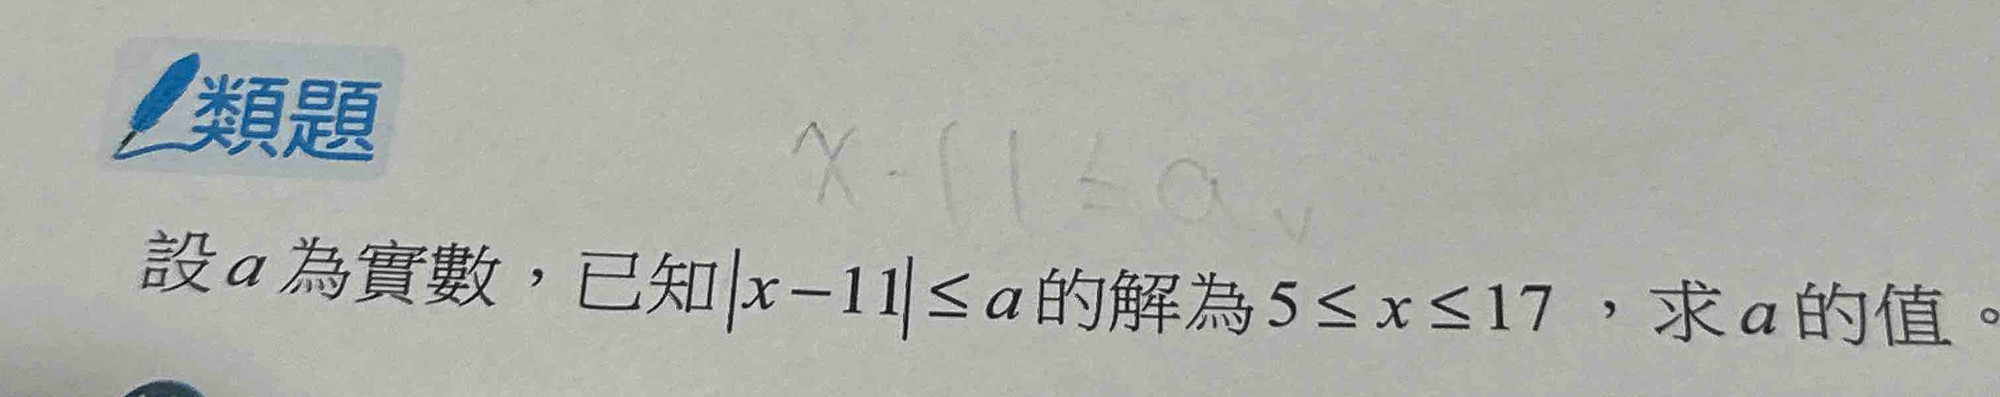 類題
x-11≤a
設a為實數，已知|x-11|≤a的解為5≤x≤17，求a的值。